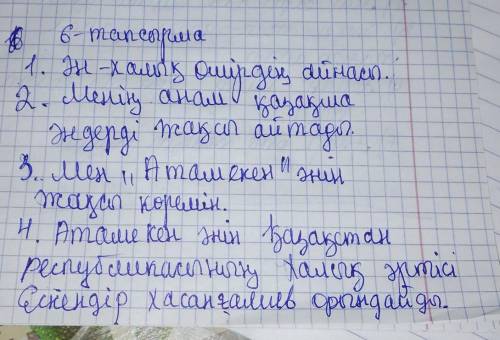 6-тапсырма
1. Ән-халық өмірдің айнасы.
2. Менің анам қазақша
әндерді жақсы айтады.
3. Мен „Атамекен" әнін
жақсы көремін.
4. Атамекен әнін Қазақстан
республикасының халық әртісі
Ескендір Хасанғалиев орындайды.